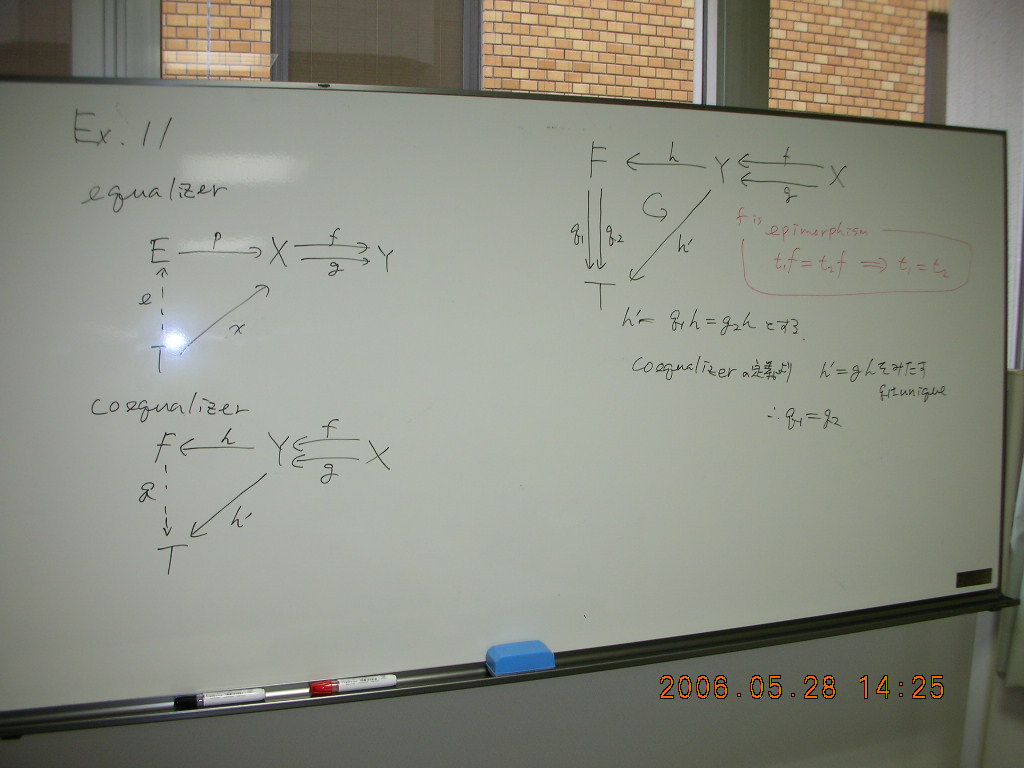 Ex. 11
equalizer
E p X f g Y
e x
T
coequalizer
F h Y f g X
q h'
T
F h Y f g X
q₁ q₂ h'
T
f is
epimorphism
t₁f = t₂f ⇒ t₁ = t₂
h' = q₁h = q₂h とする.
coequalizerの定義より h' = qhをみたす
qはunique
∴ q₁ = q₂
2006.05.28 14:25